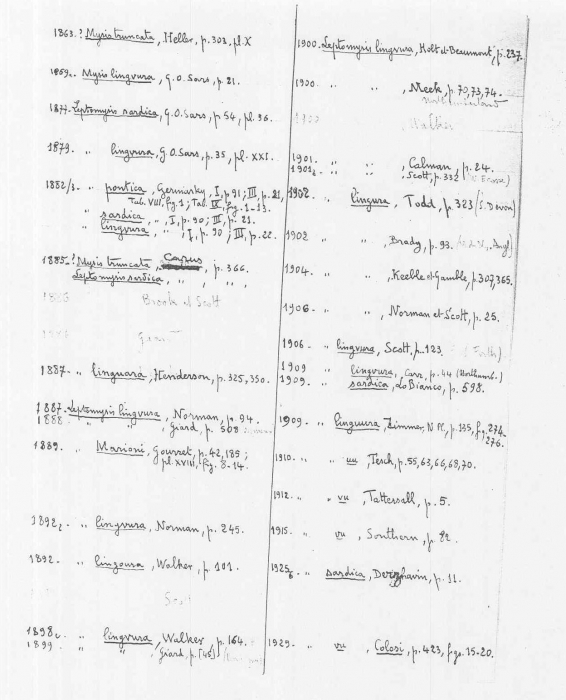 1863. ? Mysis truncata, Heller, p. 303, pl. X
1869. Mysis lingvura, G.O. Sars, p. 21.
1877. Leptomysis sardica, G.O. Sars, p. 54, pl. 36.
1879. " lingvura, G.O. Sars, p. 35, pl. XXI.
1882/3. " pontica, Czerniavsky, I, p. 91; III, p. 21,
Tab. VIII, fig. 1; Tab. IX, fig. 1-13.
" sardica, ", I, p. 90; III, p. 21.
" lingvura, ", I, p. 90; III, p. 22.
1885. ? Mysis truncata, Carus, p. 366.
Leptomysis sardica, " " "
1886 Brook et Scott
1887. " linguara, Henderson, p. 325, 350.
1887. Leptomysis lingvura, Norman, p. 94.
1888 " Giard, p. 508
1889. " Marioni, Gourret, p. 42, 185;
pl. XVIII, fig. 8-14.
1892. " lingvura, Norman, p. 245.
1892. " lingoura, Walker, p. 101.
Scott
1898. " lingvura, Walker, p. 164.
1899 " " Giard, p. [45]
1900. Leptomysis lingvura, Holt et Beaumont, p. 237.
1900. " " , Meek, p. 70, 73, 74.
Northumberland
Walker
1901. " " , Calman, p. 24.
1901. " " , Scott, p. 332
1902. lingura, Todd, p. 323 (S. Devon)
1902 " " , Brady, p. 93.
1904. " " , Keeble et Gamble, p. 307, 365.
1906. " " , Norman et Scott, p. 25.
1906. " lingvura, Scott, p. 123.
1909 " lingvura, Carr, p. 44 (Northumb.)
1909. " sardica, Lo Bianco, p. 598.
1909. " linguura, Zimmer, N. Pl., p. 135, fig. 274-
276.
1910. " uu, Tesch, p. 55, 63, 66, 68, 70.
1912. " vu, Tattersall, p. 5.
1915. " vu, Southern, p. 22.
1925. " sardica, Derzhavin, p. 11.
1929. " vu, Colosi, p. 423, figs. 15-20.